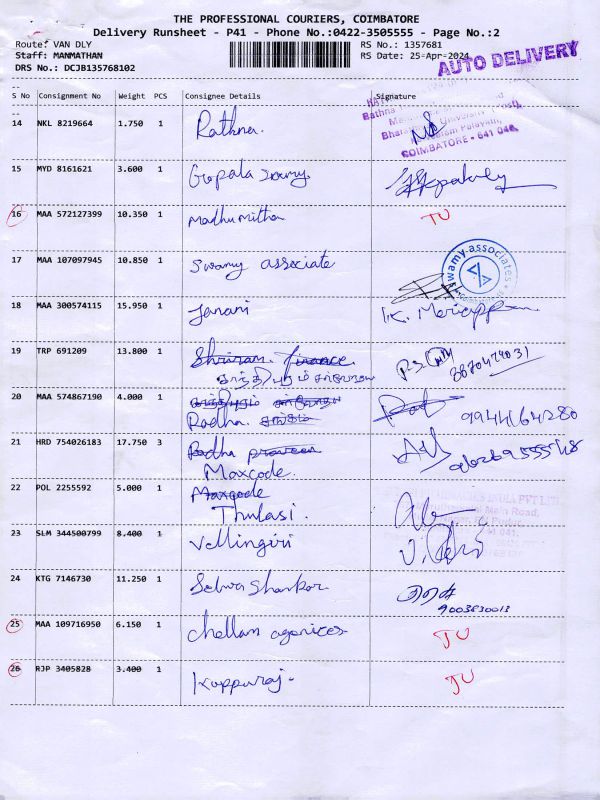 THE PROFESSIONAL COURIERS, COIMBATORE
Delivery Runsheet - P41 - Phone No.:0422-3505555 - Page No.:2
Route: VAN DLY
RS No.: 1357681
Staff: MANMATHAN
RS Date: 25-Apr-2024
DRS No.: DCJB135768102
AUTO DELIVERY
--
S No Consignment No Weight PCS Consignee Details Signature
--
COIMBATORE - 641 046
14 NKL 8219664 1.750 1 Rathna.
15 MYD 8161621 3.600 1 Gopala Samy
16 MAA 572127399 10.350 1 Madhumitha TU
17 MAA 107097945 10.850 1 Swamy associate
swamy associates
18 MAA 300574115 15.950 1 Janani
19 TRP 691209 13.800 1 Shriram Finance
20 MAA 574867190 4.000 1
Radha 9944164280
21 HRD 754026183 17.750 3 Radha praveen
Maxcode.
22 POL 2255592 5.000 1 Maxcode
Thulasi.
23 SLM 344500799 8.400 1 Vellingiri
24 KTG 7146730 11.250 1 Selva Shankar
9003830013
25 MAA 109716950 6.150 1 Chellam agencies TU
26 RJP 3405828 3.400 1 Kuppuraj. TU